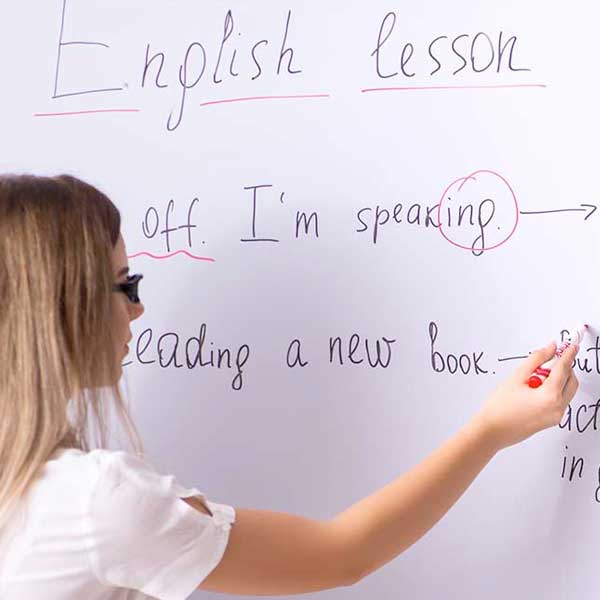 English lesson
off. I'm speaking. →
eading a new book. —
act
in